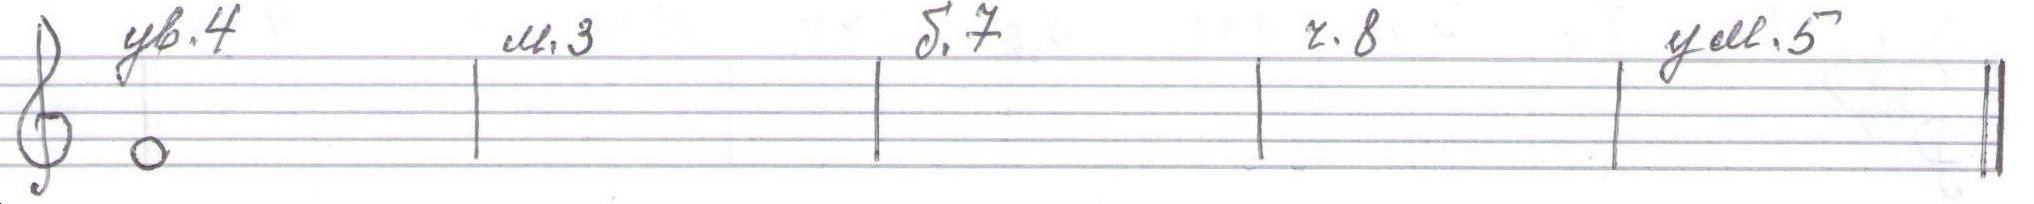 ув.4 м.3 б.7 ч.8 ум.5